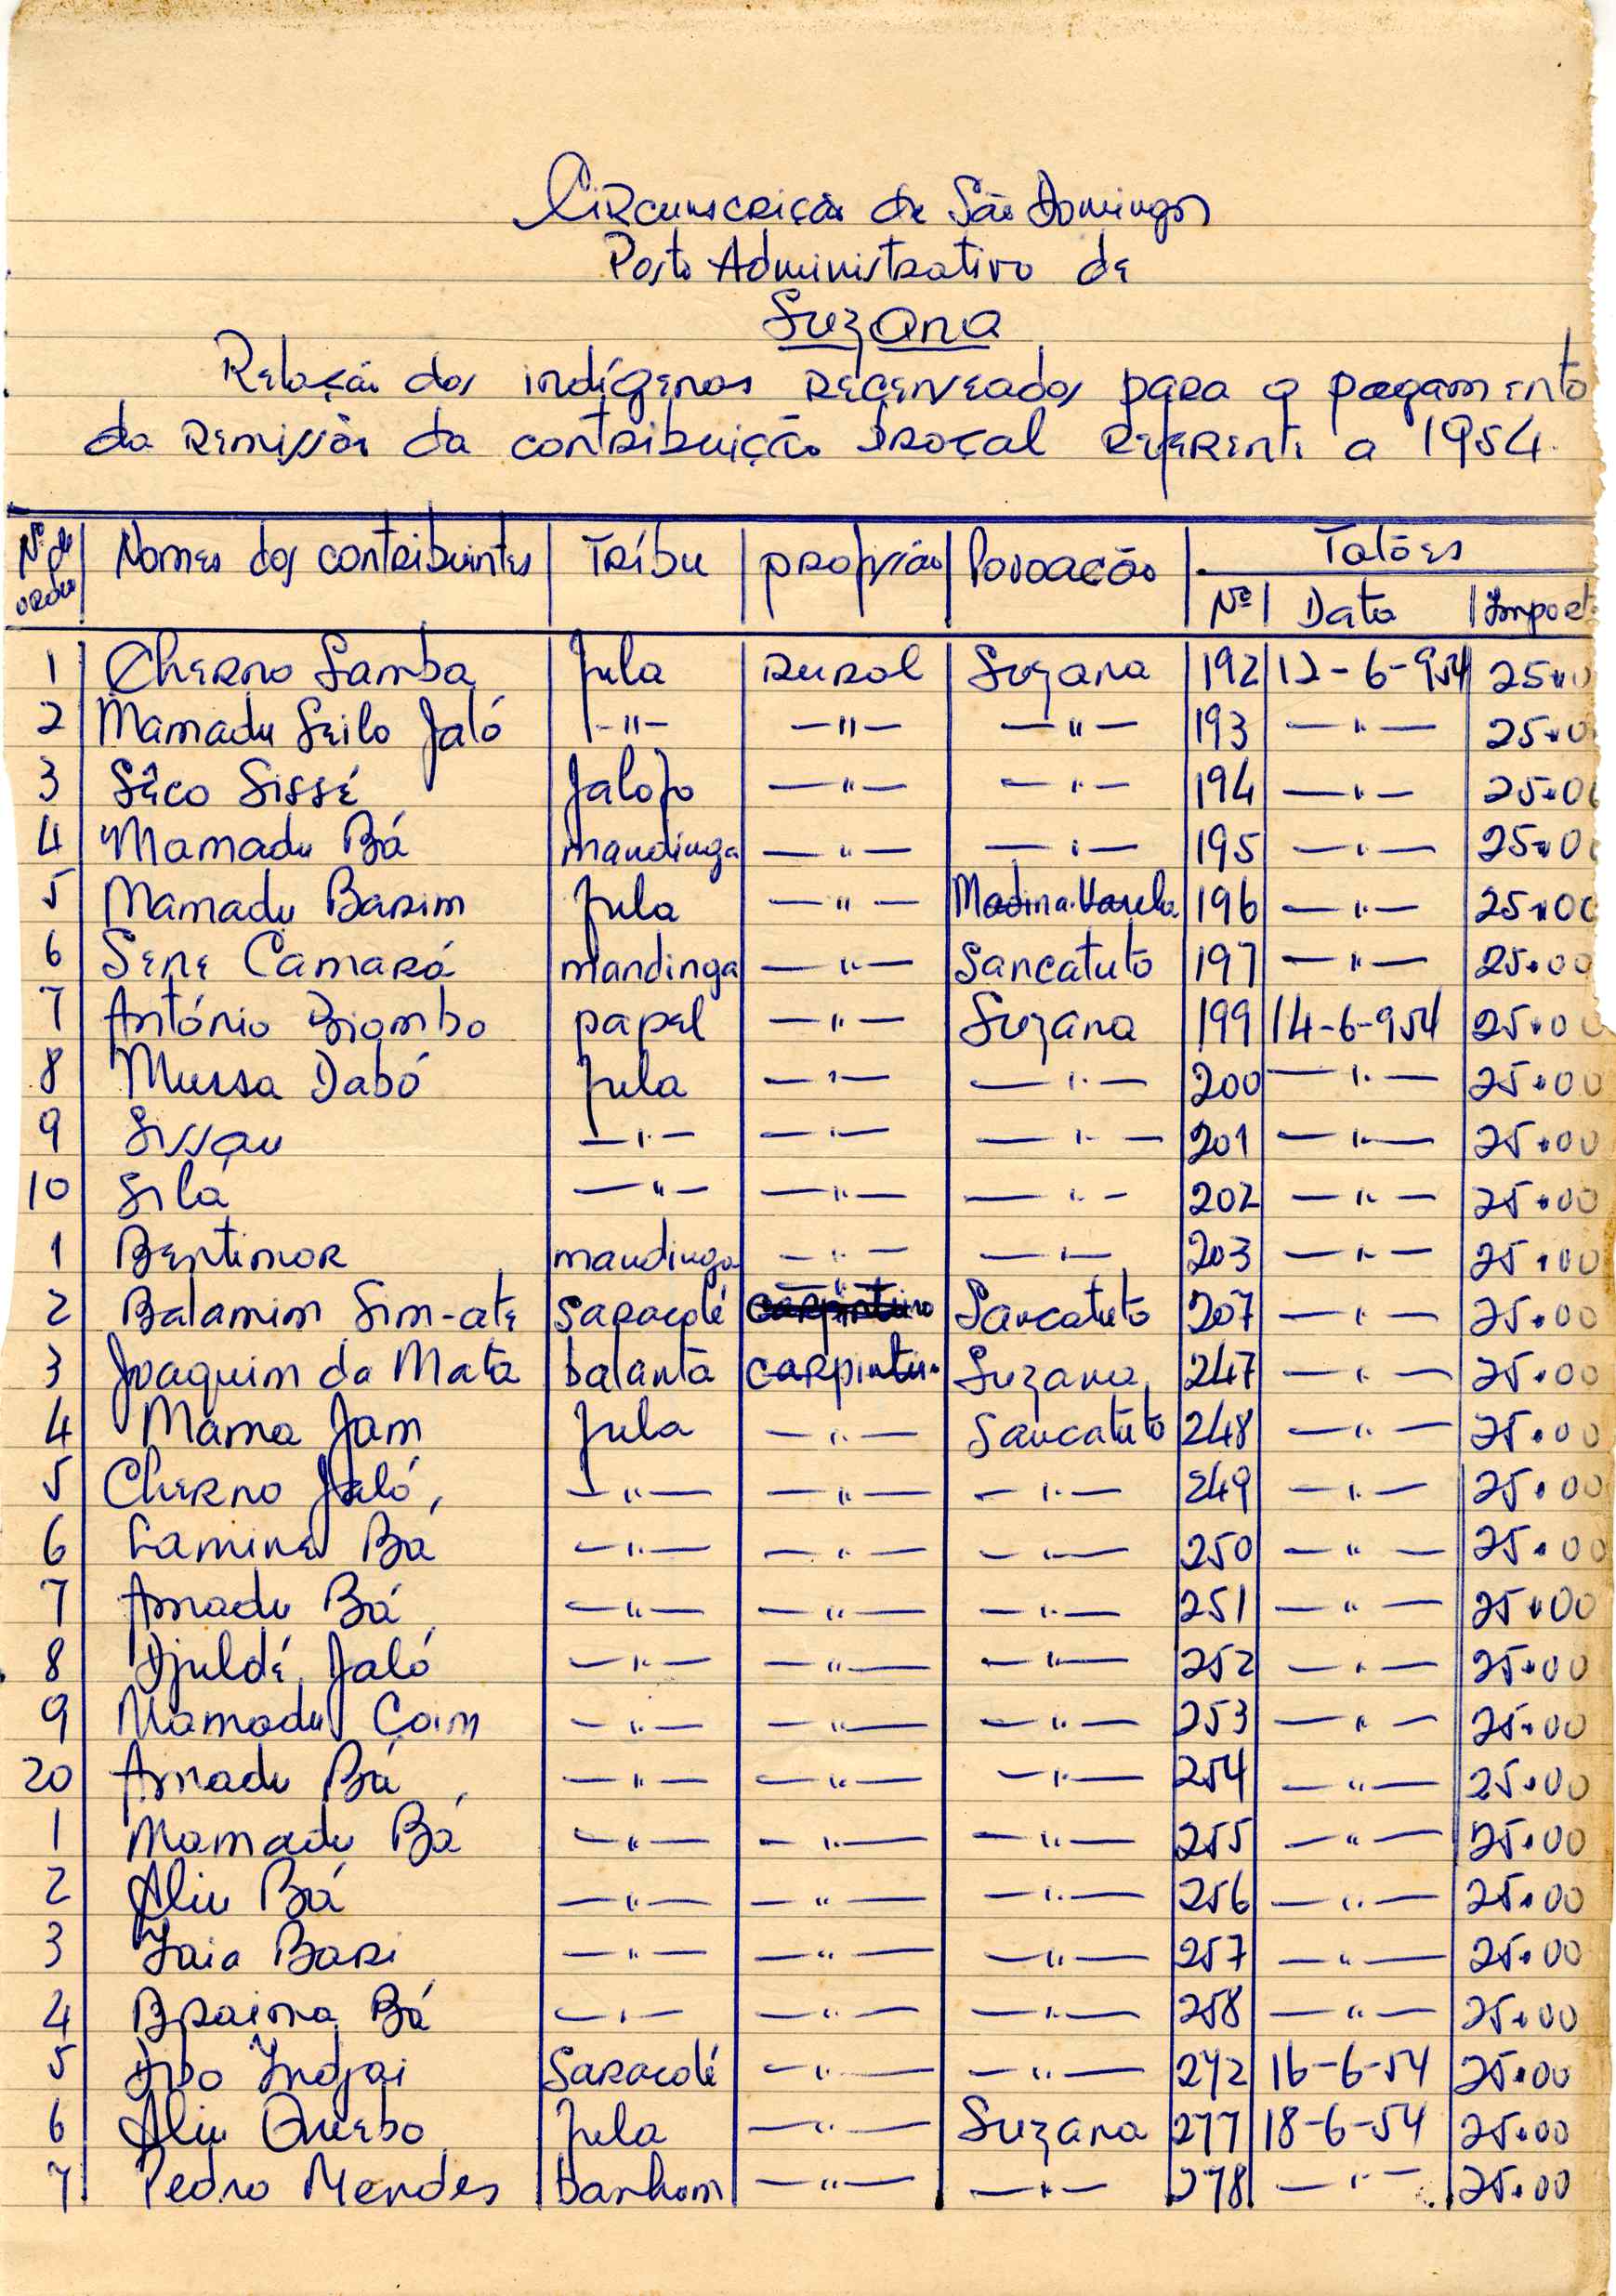 Circunscrição de São Domingos
Posto Administrativo de
Suzana
Relação dos indígenas recenseados para o pagamento
da remissão da contribuição braçal referente a 1954.
Nº de ordem Nomes dos contribuintes Tríbu profissão Povoação Talões
Nº Data Import
1 Cherno Samba fula rural Suzana 192 12-6-954 25$00
2 Mamadu Seilo Jaló -"- -"- -"- 193 -"- 25$00
3 Sêco Sissé Jalofo -"- -"- 194 -"- 25$00
4 Mamadu Bá mandinga -"- -"- 195 -"- 25$00
5 Mamadu Barim fula -"- Madina-Varela 196 -"- 25$00
6 Sene Camará mandinga -"- Sancatuto 197 -"- 25$00
7 António Biombo papel -"- Suzana 199 14-6-954 25$00
8 Mussa Dabó fula -"- -"- 200 -"- 25$00
9 Sissau -"- -"- -"- 201 -"- 25$00
10 Silá -"- -"- -"- 202 -"- 25$00
1 mandinga -"- -"- 203 -"- 25$00
2 Balamim Sim-ate Saracolé -"- carpinteiro Sancatuto 207 -"- 25$00
3 Joaquim da Mata balanta carpinteiro Suzana 247 -"- 25$00
4 Mama Jam fula -"- Sancatuto 248 -"- 25$00
5 Cherno Jaló -"- -"- -"- 249 -"- 25$00
6 Lamine Bá -"- -"- -"- 250 -"- 25$00
7 Amadu Bá -"- -"- -"- 251 -"- 25$00
8 Djuldé Jaló -"- -"- -"- 252 -"- 25$00
9 Mamadu Çam -"- -"- -"- 253 -"- 25$00
20 Amadu Bá -"- -"- -"- 254 -"- 25$00
1 Mamadu Bá -"- -"- -"- 255 -"- 25$00
2 Aliu Bá -"- -"- -"- 256 -"- 25$00
3 Iaia Bari -"- -"- -"- 257 -"- 25$00
4 Braima Bá -"- -"- -"- 258 -"- 25$00
5 Indjai Saracolé -"- -"- 272 16-6-54 25$00
6 Aliu Quebo fula -"- Suzana 277 18-6-54 25$00
7 Pedro Mendes banhum -"- -"- 278 -"- 25$00